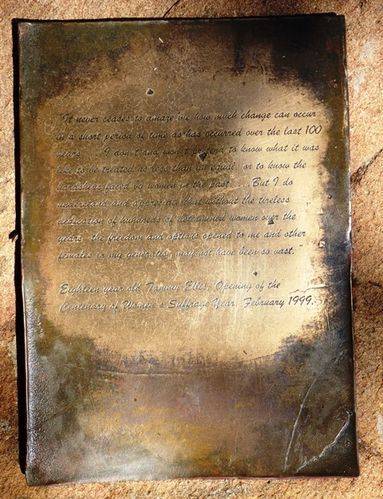 "It never ceases to amaze me how much change can occur
in a short period of time as has occurred over the last 100
years . . . I don't and won't pretend to know what it was
like to be treated as less than an equal, or to know the
hardships faced by women in the past . . . But I do
understand and appreciate that without the tireless
dedication of hundreds of determined women over the
years, the freedom and options opened to me and other
females of my generation may not have been so vast."
Eighteen year old, Tammy Elles, Opening of the
Centenary of Women's Suffrage Year, February 1999.